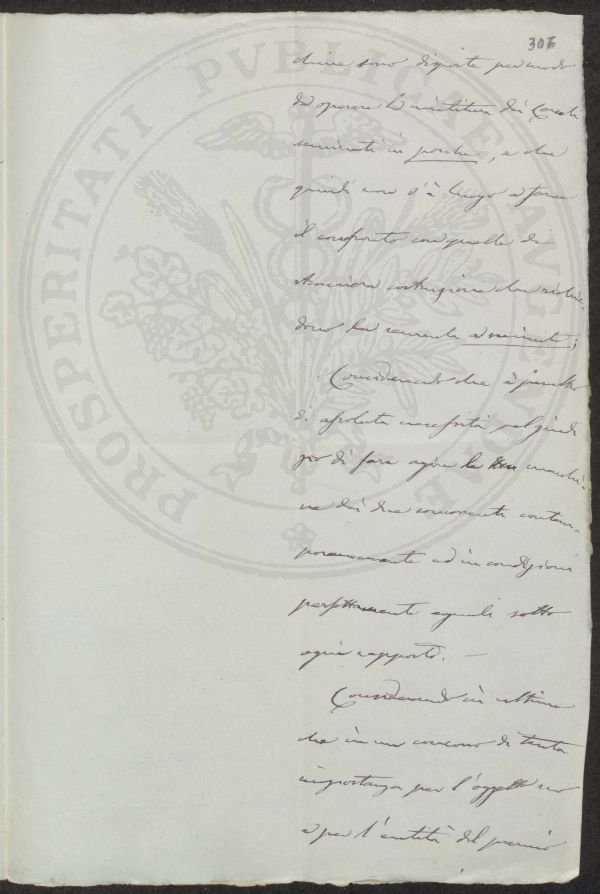 306
chine sono disposte per modo
da operare la mietitura dei Cereali
seminati in porche, e che
quindi non v'è luogo a fare
il confronto con quelle di
straniera costruzione che richie-
dono la semente a minuti;
Considerando che è pure
di assoluta necessità pel giudi-
zio di fare agire le macchi-
ne dei due concorrenti contem-
poraneamente ed in condizioni
perfettamente eguali sotto
ogni rapporto. —
Considerando in ultimo
che in un concorso di tanta
importanza per l'oggetto suo
e per l'entità del premio
PROSPERITATI PVBLICAE AVGENDAE